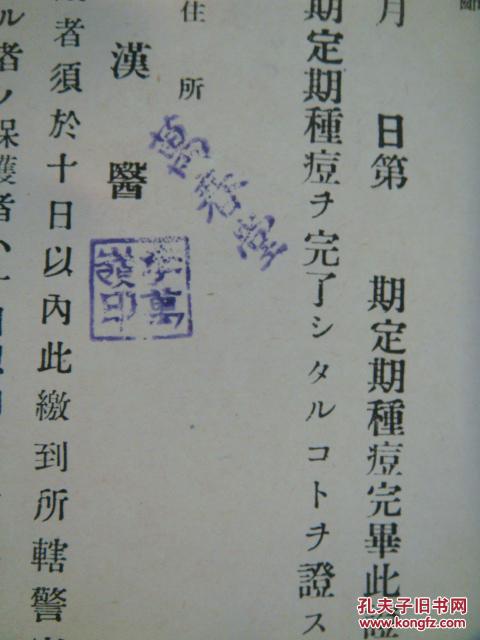 月　日第　期定期種痘完畢此證
期定期種痘ヲ完了シタルコトヲ證ス
住所
萬春堂
漢醫
李萬嶺印
者須於十日以內此繳到所轄警
ル者ノ保護者ハ
孔夫子旧书网
www.kongfz.com